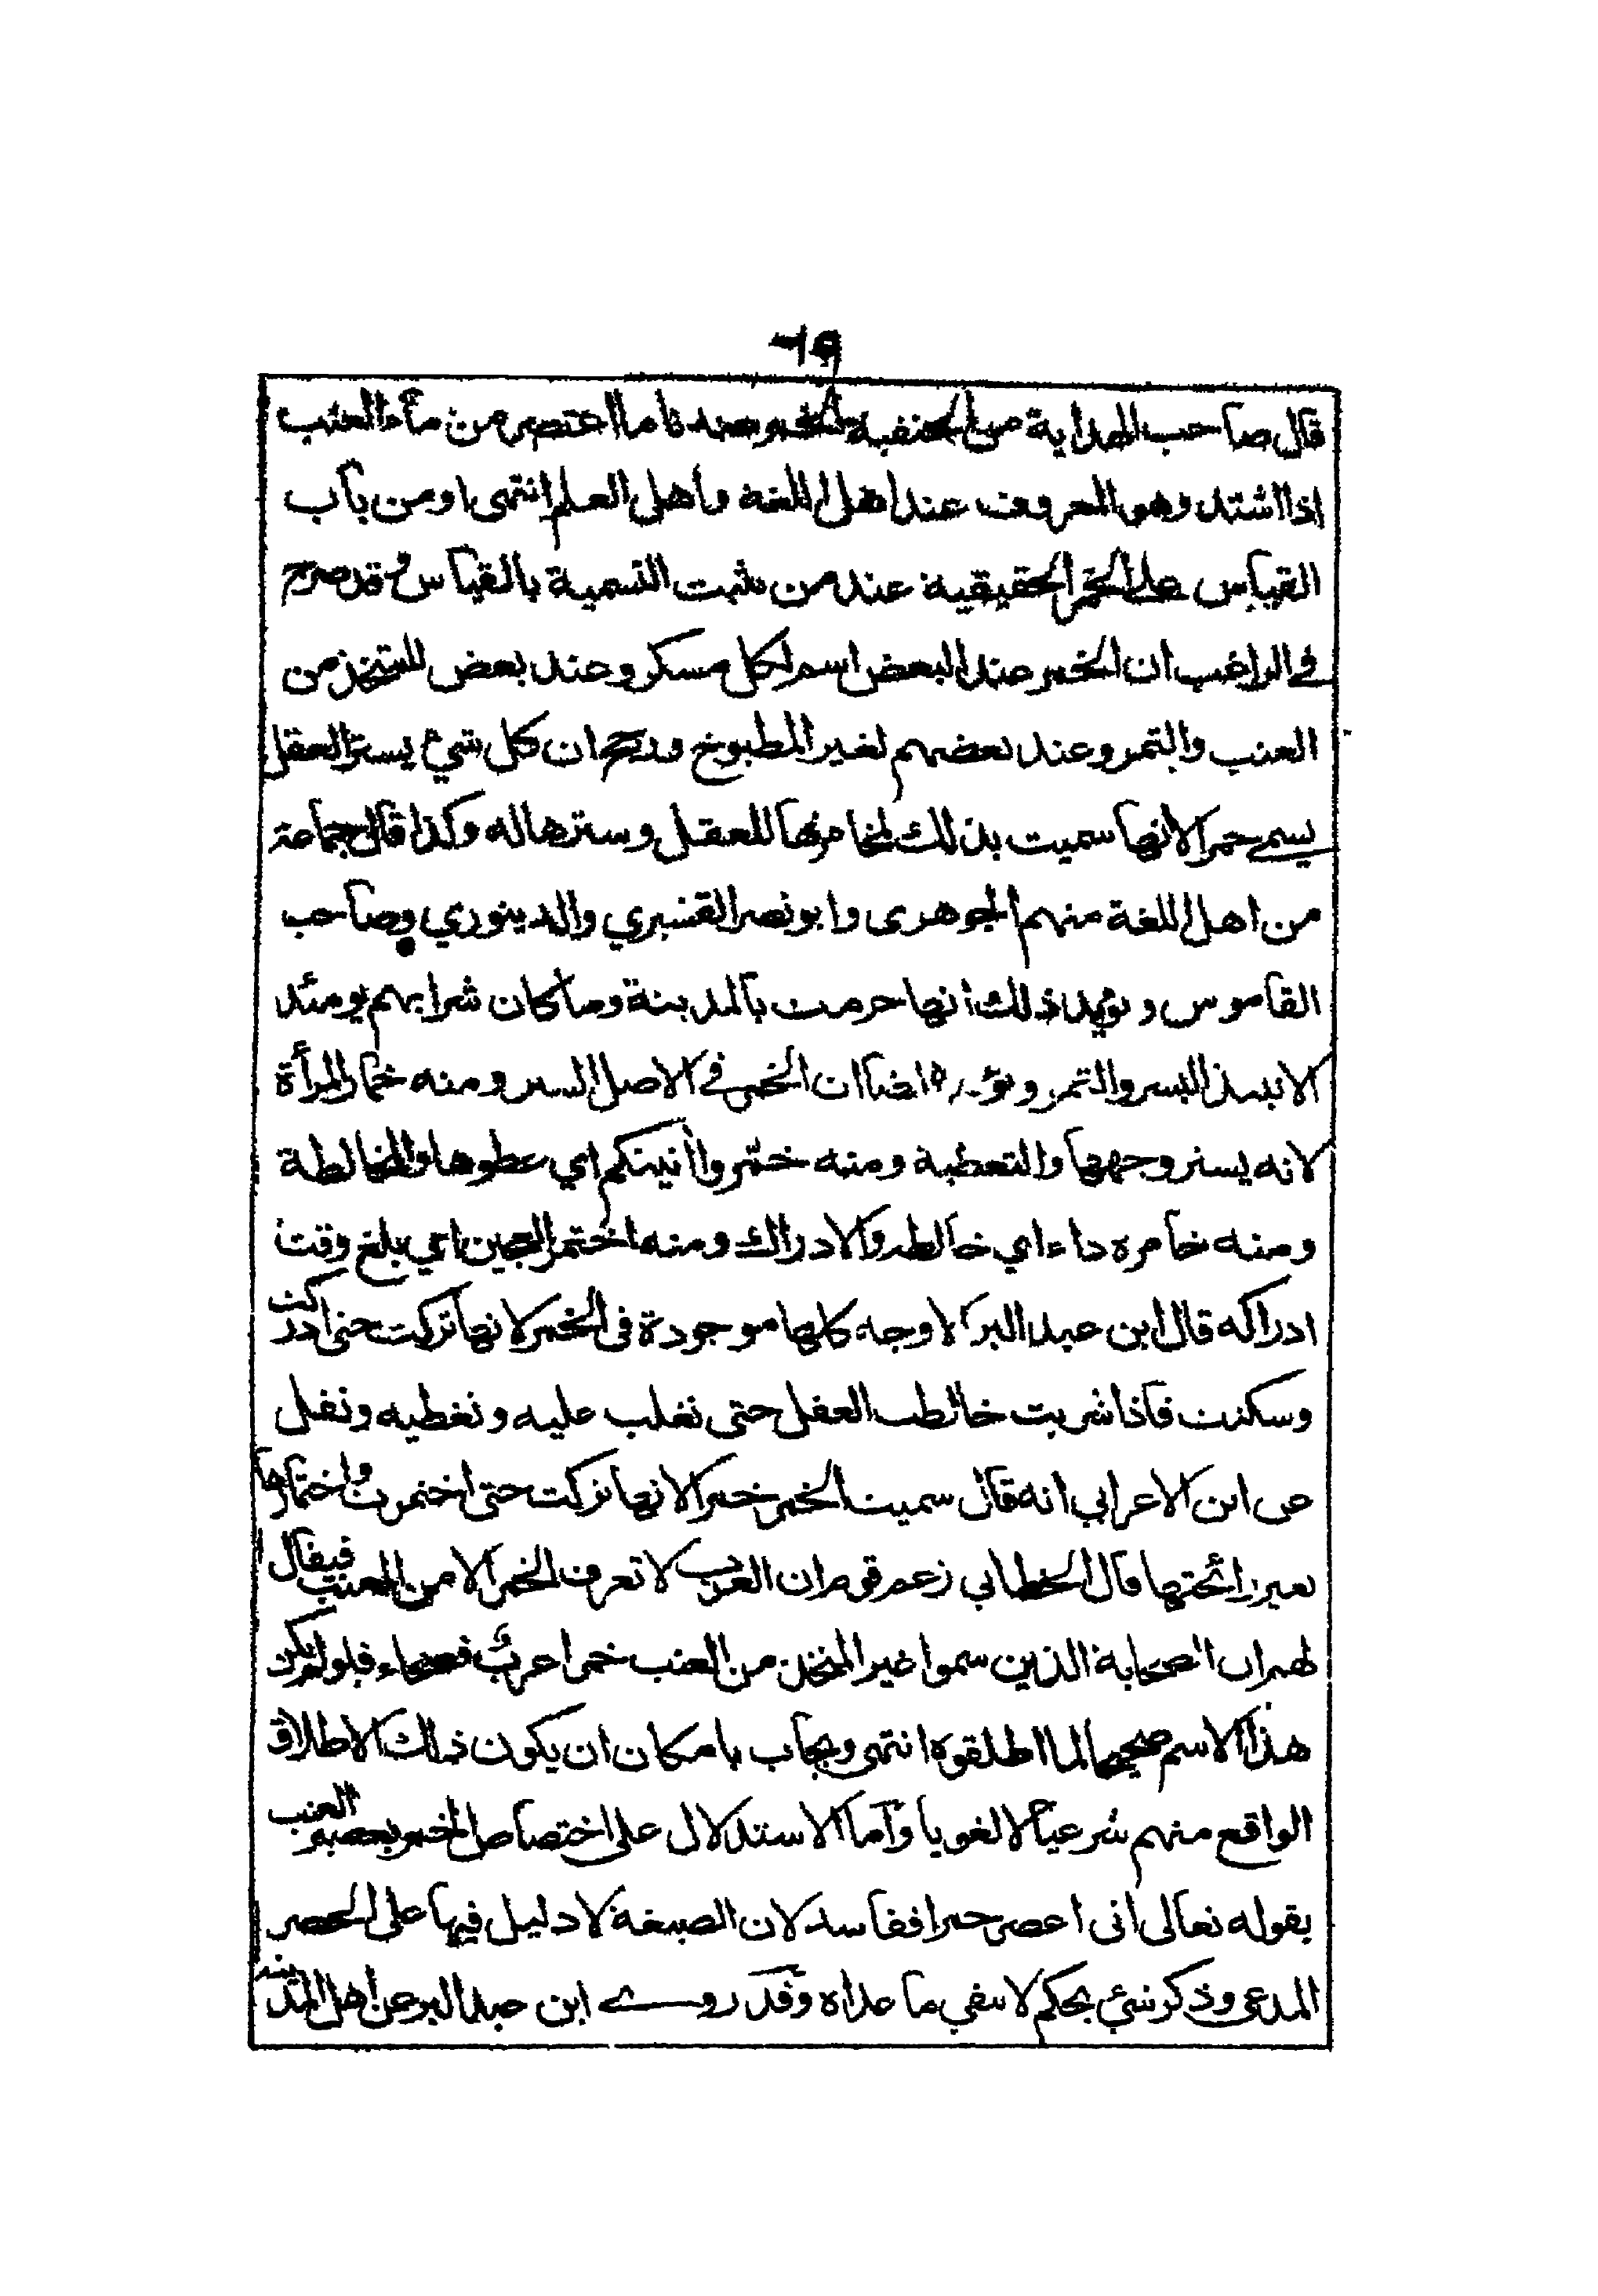 قال صاحب الهداية من الحنفية الخمر عندنا ما اعتصر من ماء العنب
اذا اشتد وهو المعروف عند اهل اللغة واهل العلم انتهى او من باب
القياس على الخمر الحقيقية عند من يثبت التسمية بالقياس وقد صرح
في الراغب ان الخمر عند البعض اسم لكل مسكر وعند بعض للمتخذ من
العنب والتمر وعند بعضهم لغير المطبوخ ورجح ان كل شيء يستر العقل
يسمى خمرا لانها سميت بذلك لمخامرتها للعقل وسترها له وكذا قال جماعة
من اهل اللغة منهم الجوهرى وابو نصر القشيري والدينوري وصاحب
القاموس ويؤيد ذلك انها حرمت بالمدينة وما كان شرابهم يومئذ
الا نبيذ البسر والتمر ويؤيده ايضا ان الخمر في الاصل الستر ومنه خمار المرأة
لانه يستر وجهها والتغطية ومنه خمّروا أنيتكم اي غطوها والمخالطة
ومنه خامره داء اي خالطه والادراك ومنه اختمر العجين اي بلغ وقت
ادراكه قال ابن عبد البر الاوجه كلها موجودة فى الخمر لانها تركت حتى ادركت
وسكنت فاذا شربت خالطت العقل حتى تغلب عليه وتغطيه ونقل
عن ابن الاعرابي انه قال سميت الخمر خمرا لانها تركت حتى اختمرت واختمارها
تغير رائحتها قال الخطابي زعم قوم ان العرب لا تعرف الخمر الا من العنب فيقال
لهم ان الصحابة الذين سموا غير المتخذ من العنب خمرا عرب فصحاء فلو لم يكن
هذا الاسم صحيحا لما اطلقوه انتهى ويجاب بامكان ان يكون ذلك الاطلاق
الواقع منهم شرعيا لا لغويا وأما الاستدلال على اختصاص الخمر بعصير العنب
بقوله تعالى انى اعصر خمرا ففاسد لان الصيغة لا دليل فيها على الحصر
المدعى وذكر شئ بحكم لا ينفي ما عداه وقد روى ابن عبد البر عن اهل المدينة